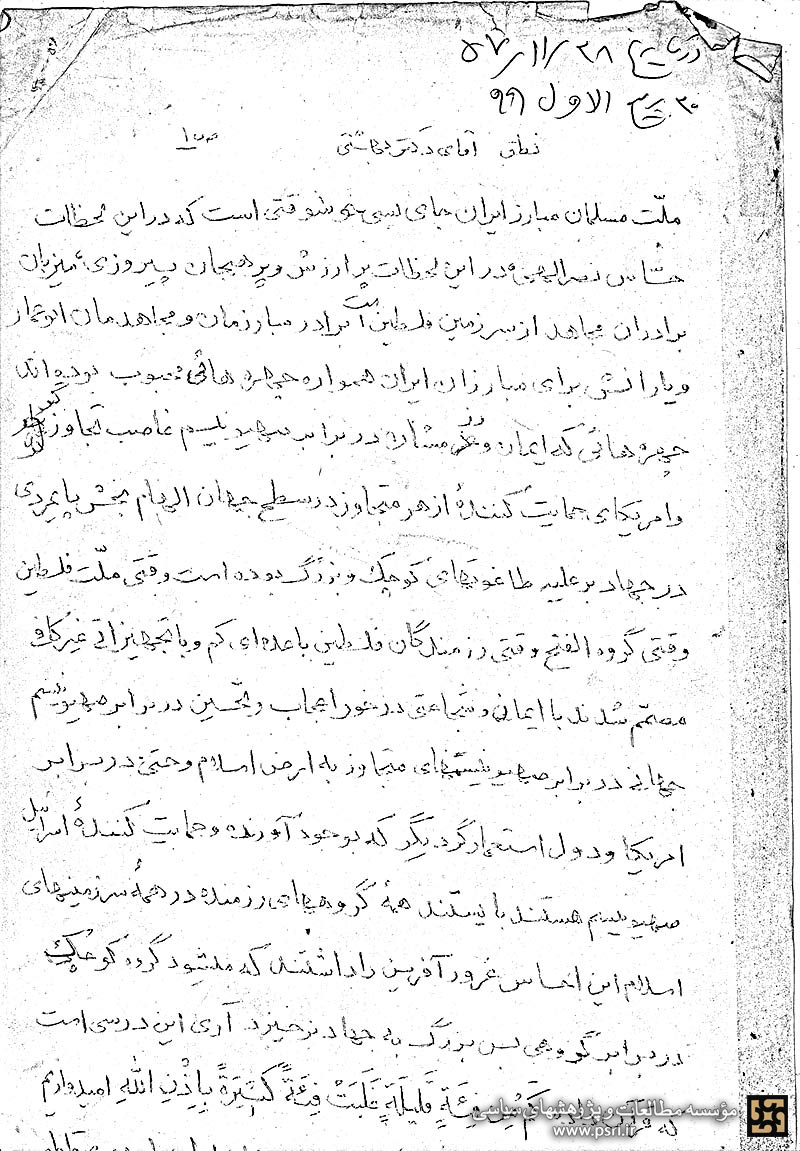 در تاریخ ۲۸ر۱۱ر۵۷
۲۰ ربیع الاول ۹۹
نطق آقای دکتر بهشتی
ملّت مسلمان مبارز ایران جای بسی خوشوقتی است که در این لحظات
حسّاس در این لحظات پر ارزش و پر هیجان پیروزی، میزبان
برادران مجاهد از سرزمین فلسطین است برادر مبارزمان و مجاهدمان ابوعمار
و یارانش برای مبارزان ایران همواره چهره هائی محبوب بوده اند
چهره هائی که ایمان و رزمشان در برابر صهیونیسم غاصب تجاوزگر
و امریکای حمایت کنندهٔ از هر متجاوز در سطح جهان الهام بخش پایمردی
در جهاد بر علیه طاغوتهای کوچک و بزرگ بوده است وقتی ملّت فلسطین
وقتی گروه الفتح وقتی رزمندگان فلسطین با عده ای کم و با تجهیزاتی غیر کافی
مصمّم شدند با ایمان و شجاعتی در خور اعجاب و تحسین در برابر صهیونیسم
جهانی در برابر صهیونیستهای متجاوز به ارض اسلام و حتی در برابر
امریکا و دول استعمارگر دیگر که بوجود آورنده و حمایت کنندهٔ اسرائیل
صهیونیسم هستند بایستند همهٔ گروههای رزمنده در همهٔ سرزمینهای
اسلام این احساس غرور آفرین را داشتند که میشود گروه کوچک
در برابر گروهی بس بزرگ به جهاد برخیزد آری این درسی است
که قرآن داد کَمْ مِنْ فِئَةٍ قَلیلَةٍ غَلَبَتْ فِئَةً کَثیرَةً بِإِذْنِ اللهِ امیدواریم
مؤسسه مطالعات و پژوهشهای سیاسی
www.psri.ir